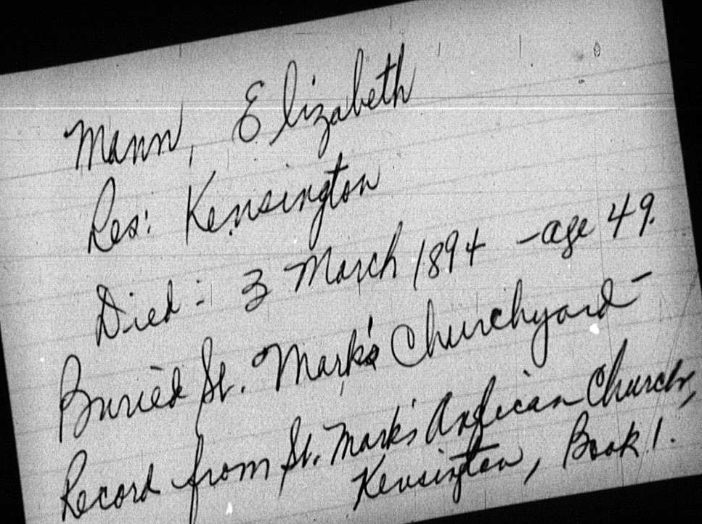 Mann, Elizabeth
Res: Kensington
Died: 3 March 1894 - age 49.
Buried St. Mark's Churchyard -
Record from St. Mark's Anglican Church,
Kensington, Book 1.